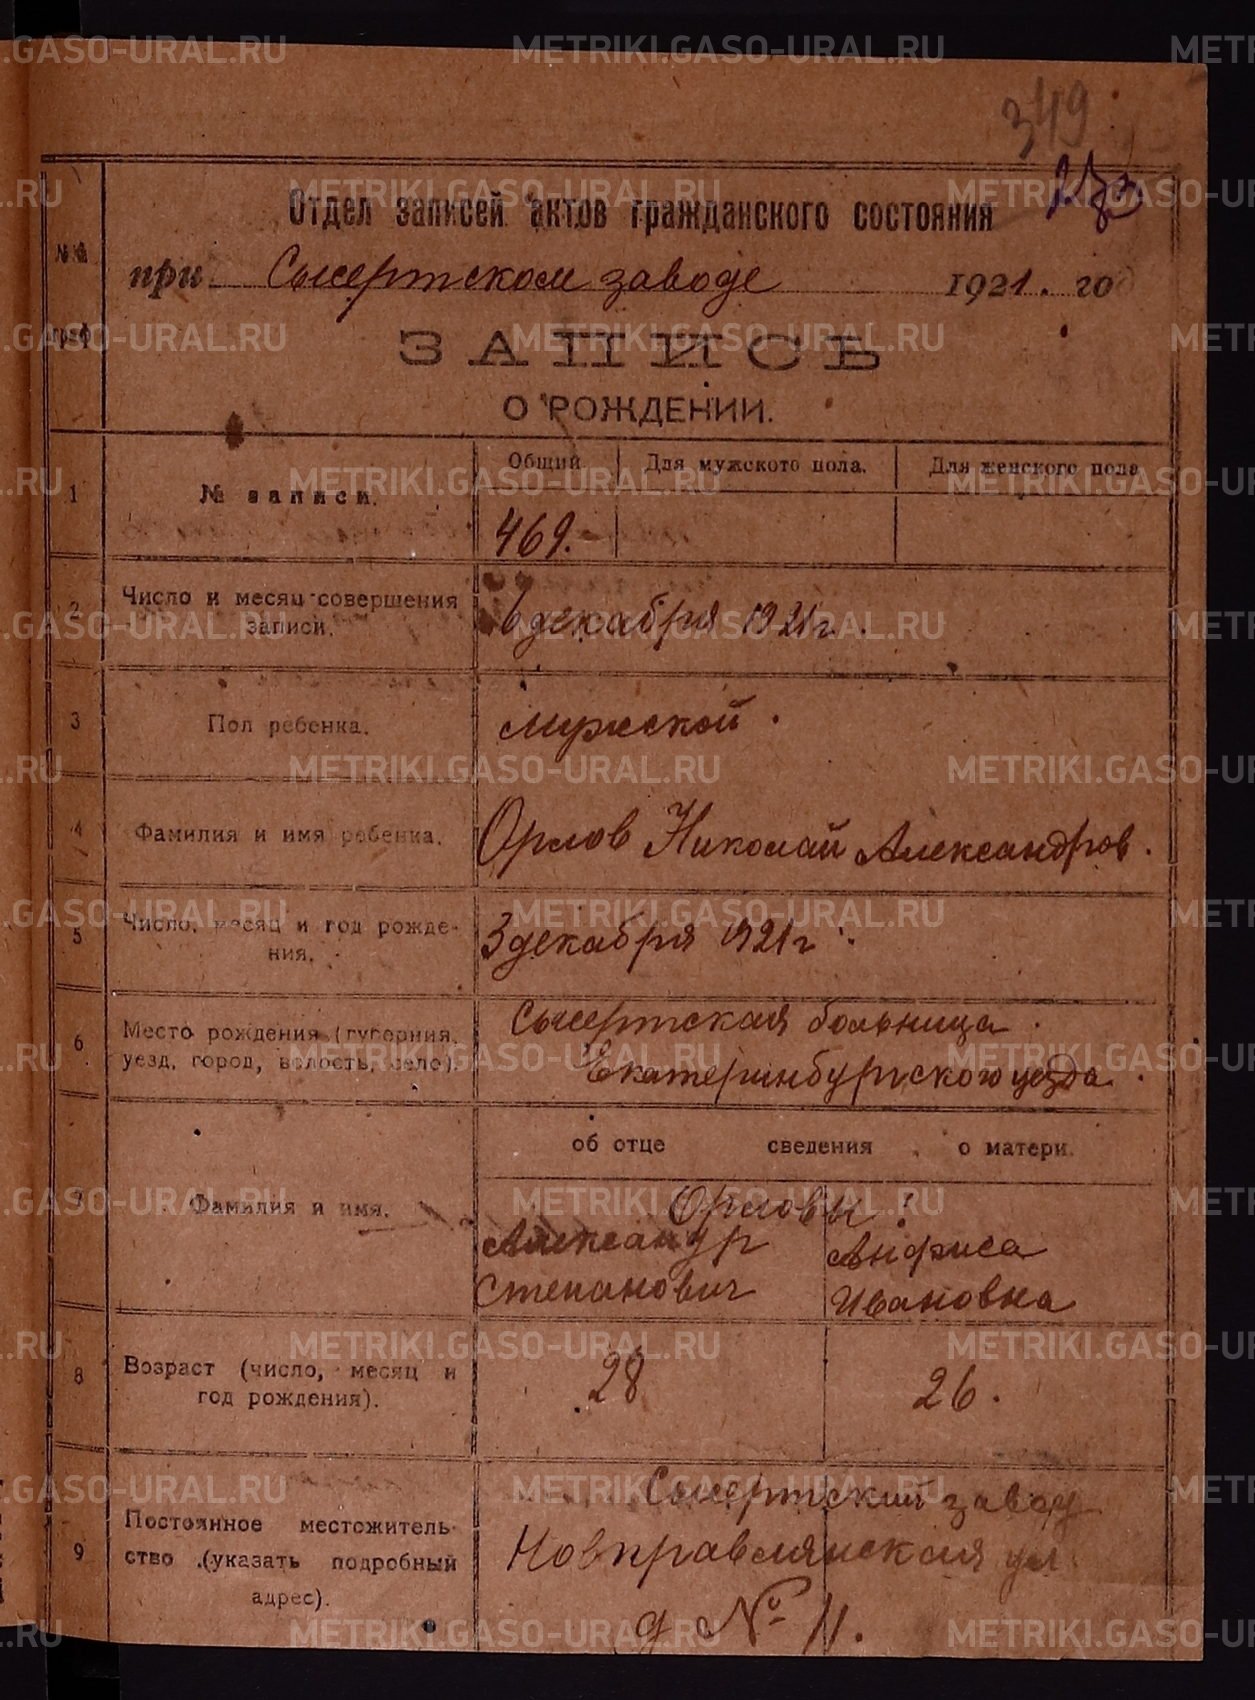 349
Отдел записей актов гражданского состояния
№№ граф
при Сысертском заводе 1921. го
ЗАПИСЬ
О РОЖДЕНИИ.
Общий Для мужского пола. Для женского пола
1 № записи.
469.
2 Число и месяц совершения записи.
6 декабря 1921 г.
3 Пол ребенка.
мужской.
4 Фамилия и имя ребенка.
Орлов Николай Александров.
5 Число, месяц и год рожде-
ния.
3 декабря 1921 г.
6 Место рождения (губерния,
уезд, город, волость, село).
Сысертская больница.
Екатеринбургского уезда.
об отце сведения о матери.
7 Фамилия и имя.
Орловы
Александр Анфиса
Степанович Ивановна
8 Возраст (число, месяц и
год рождения).
28 26.
9 Постоянное местожитель-
ство (указать подробный
адрес).
Сысертский завод
ул
д № 11.
METRIKI.GASO-URAL.RU